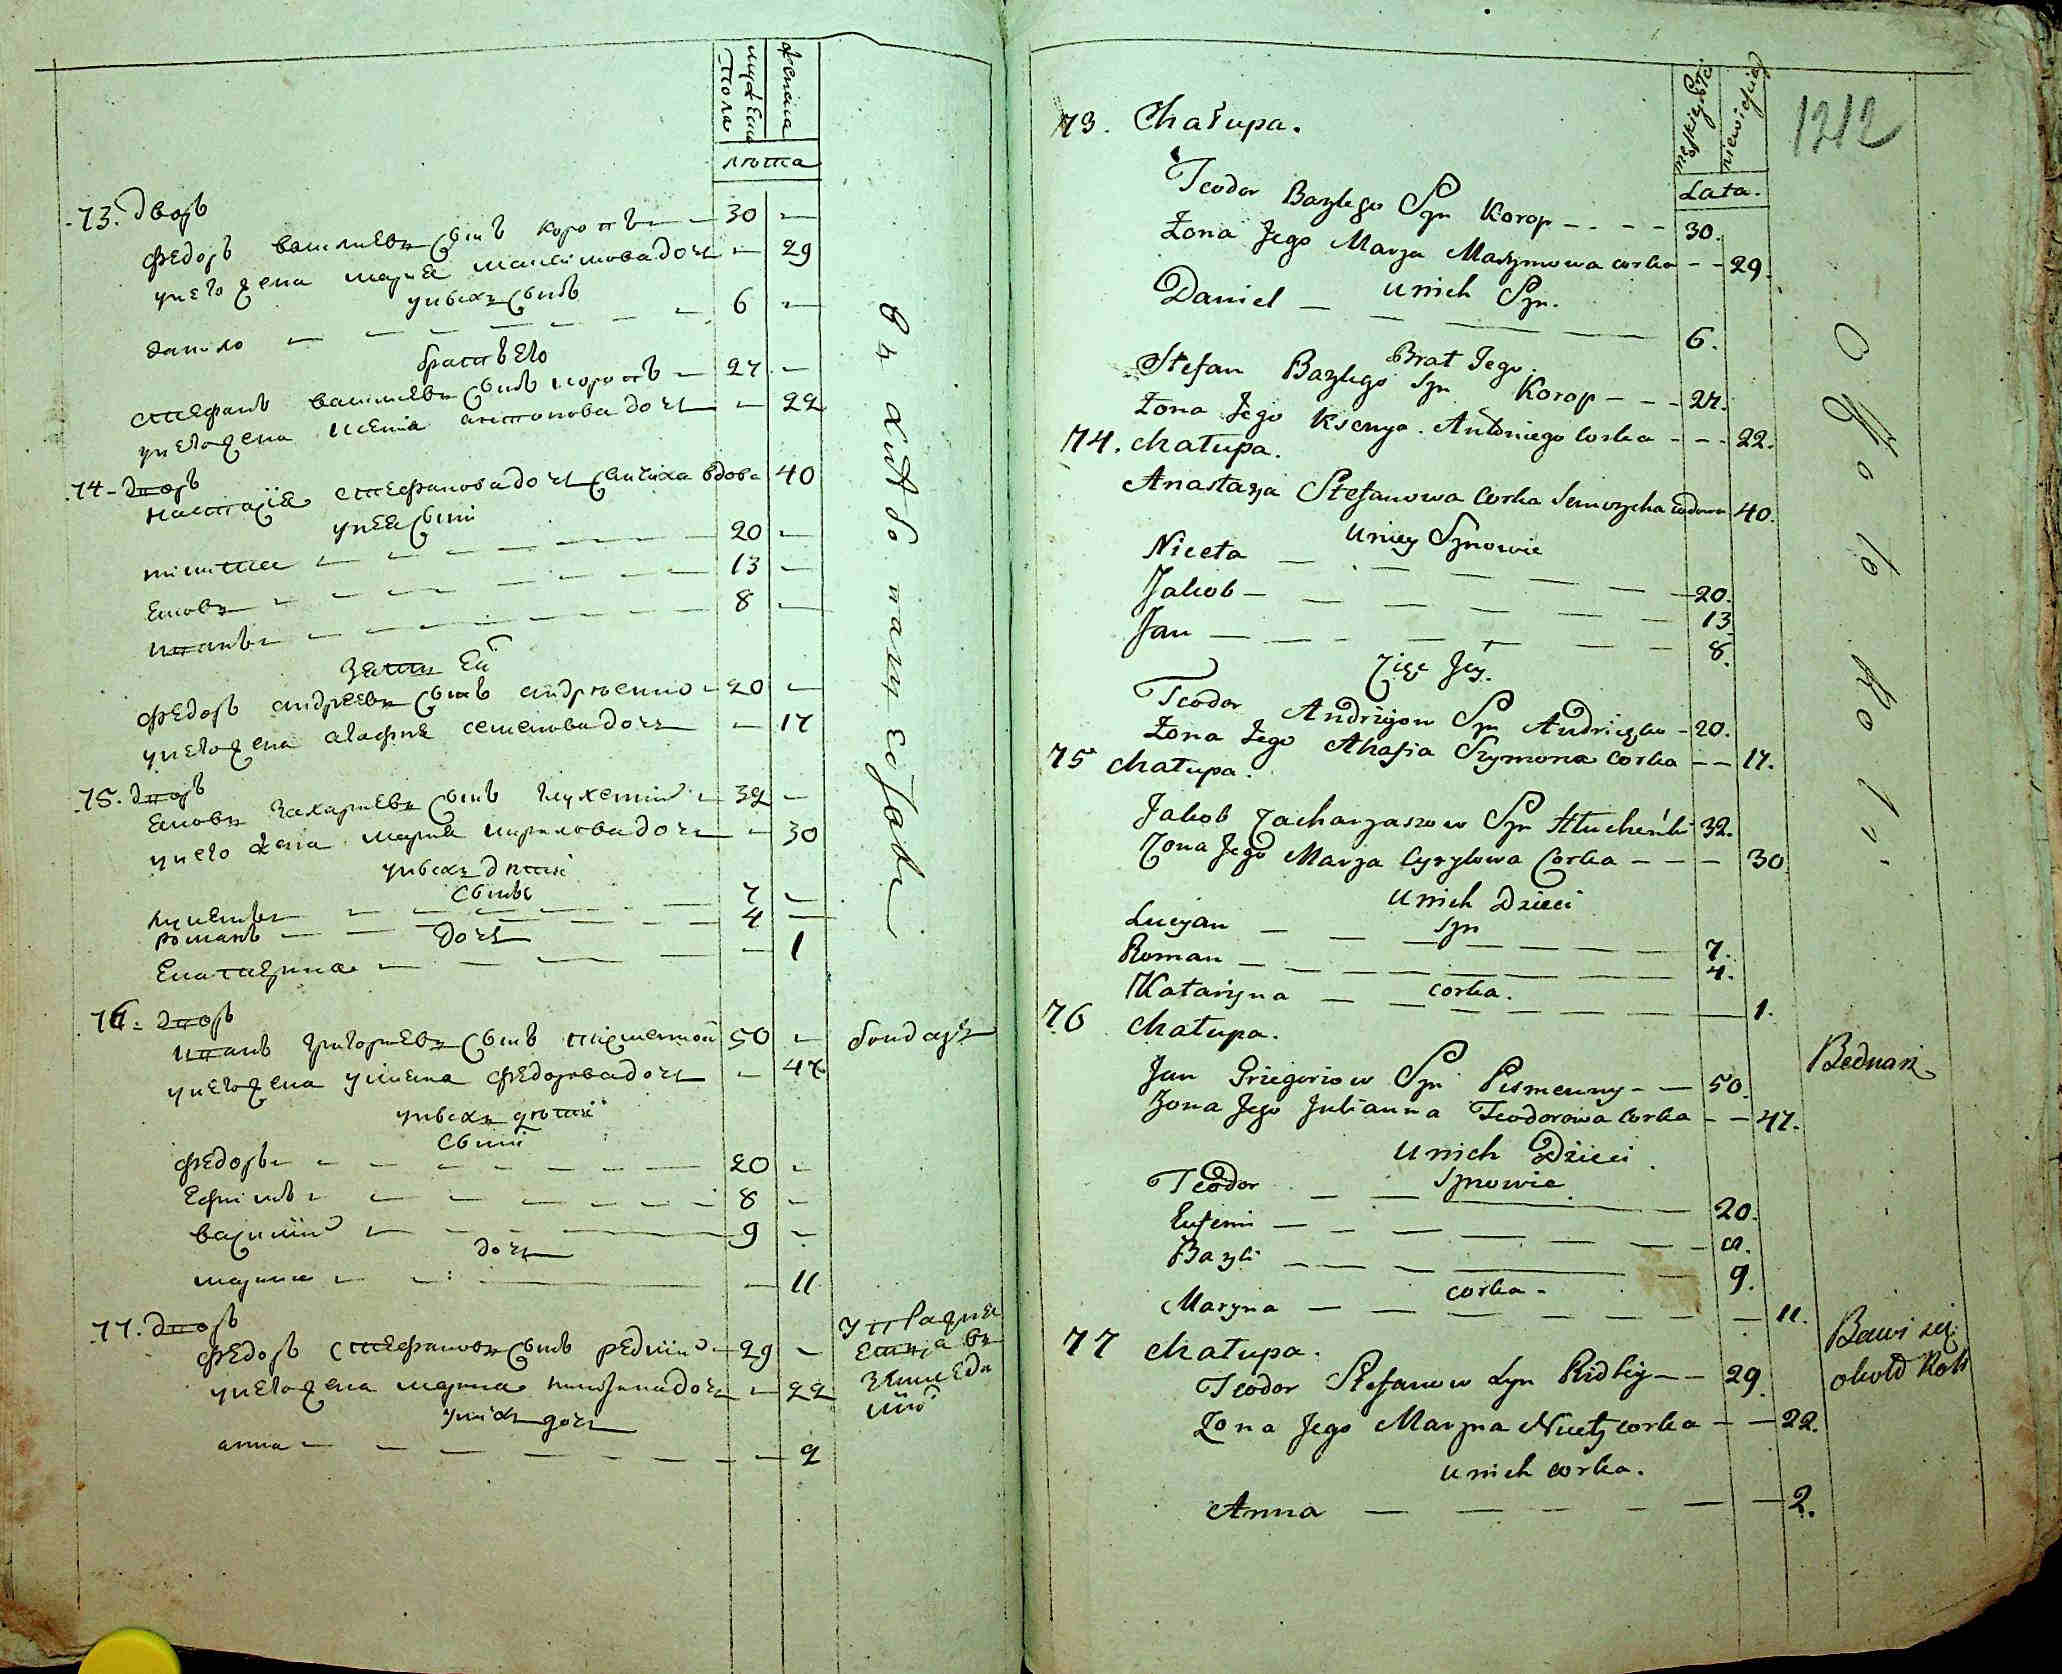 мужеска
пола
женска
лѣта
73. Дворъ
Федоръ василиевъ сынъ коропъ 30 —
у него жена мария максимова дочь — 29
у нихъ сынъ
данило — — — — 6 —
братъ его
стефанъ василиевъ сынъ коропъ — 27 —
у него жена ксения антонова дочь — 22
74 дворъ
настасия стефанова дочь вдова 40
у нея сыни
никита — — — 20 —
яковъ — — — 13 —
иванъ — — — 8 —
зять ей
федоръ андреевъ сынъ андрѣенко 20 —
у него жена агафия семенова дочь — 17
75. дворъ
яковъ захариевъ сынъ глухенкий 32 —
у него жена мария кирилова дочь — 30
у нихъ дѣти
сынъ
лукянъ — — — 7 —
романъ — — — 4 —
дочь
екатерина — — — 1
76. дворъ
иванъ григориевъ сынъ писменной 50 — бондаръ
у него жена улияна федорова дочь — 47
у нихъ дѣти
сыни
федоръ — — — 20 —
ефимъ — — — 8 —
василий — — — 9 —
дочь
марина — — — 11
77. дворъ
федоръ стефановъ сынъ редкий 29 —
у него жена марина никитина дочь — 22
у нихъ дочь
анна — — — 2
въ хлѣбо пашествѣ
упражня
ется въ
землед
1212
męskiey płci
niewieściey
Lata.
73. Chałupa.
Teodor Bazylego Syn Korop — — — 30.
Żona Jego Marya Maxymowa corka — — 29.
u nich Syn.
Daniel — — — 6.
Brat Jego.
Stefan Bazylego Syn Korop — — — 27.
Żona Jego Ksenya Antoniego Corka — — — 22.
74. chałupa.
Anastazja Stefanowa Corka wdowa 40.
U niey Synowie
Niceta — — — 20.
Jakob — — — 13
Jan — — — 8.
Zięć Jey.
Teodor Andrzejow Syn Andriejko — 20.
Żona Jego Ahafia Szymona Corka — — 17.
75 chałupa.
Jakob Zacharyaszow Syn Hłucheńki 32.
Żona Jego Marya Cyrylowa Corka — — — 30
u nich Dzieci
Syn
Lucyan — — — 7.
Roman — — — 4.
corka.
Katarzyna — — — 1.
76 chałupa.
Jan Griegoriow Syn Pismenny — — 50. Bednarz
Żona Jego Julianna Teodorowa Corka — — 47.
u nich Dzieci
Synowie
Teodor — — — 20.
Eufemi — — — 8.
Bazyli — — — 9.
corka.
Maryna — — — 11.
77 chałupa.
Teodor Stefanow Syn Ridkiy — — 29.
Żona Jego Maryna Nicety corka — — 22.
u nich corka.
Anna — — — 2.
około Roli
Bawi się
około Roli